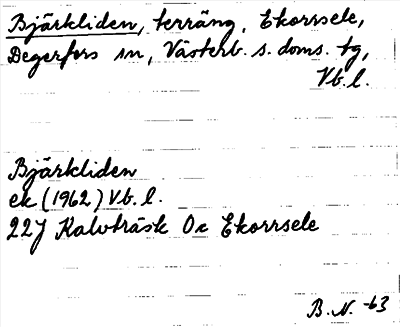 Bjärkliden, terräng, Ekorrsele,
Degerfors sn, Västerb. s. doms. tg,
Vb. l.
Bjärkliden
ek (1962) Vb. l.
22J Kalvträsk 0a Ekorrsele
B. N. -63